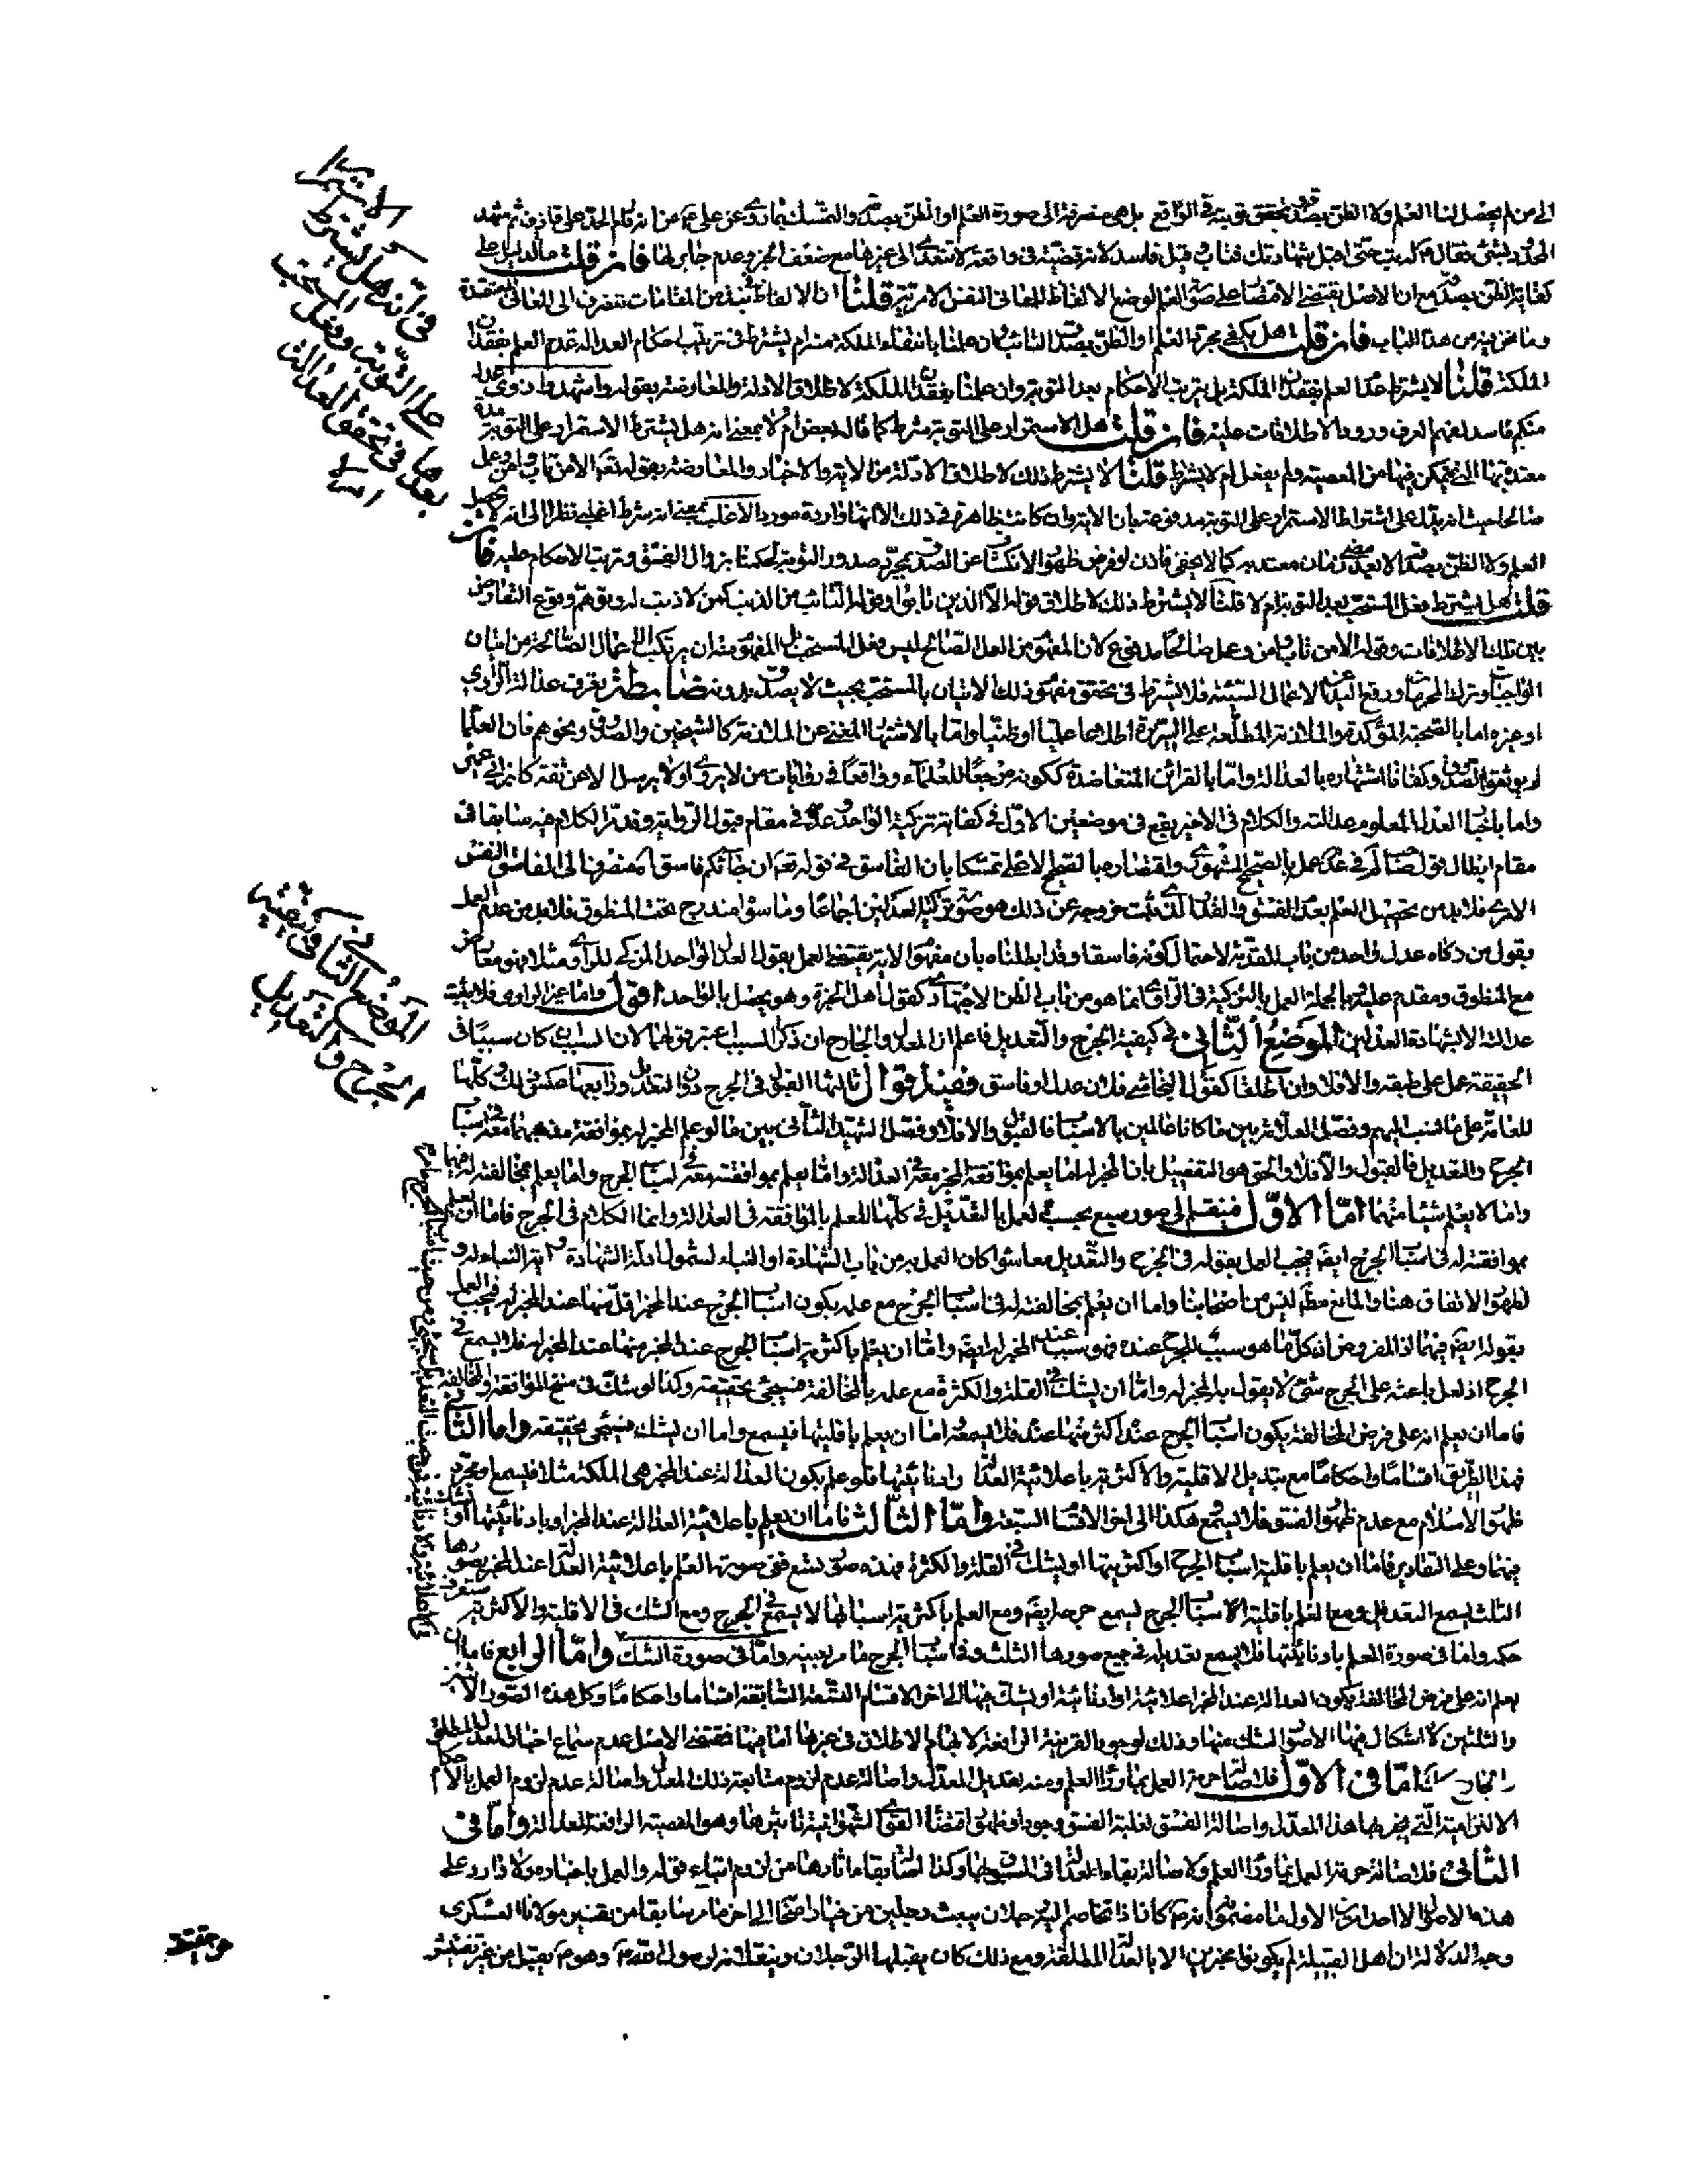 الى من لم يحصل لنا العلم ولا الظن بصدق تحقق توبته فى الواقع بل هى منصرفة الى صورة العلم او الظن بصدقه والتمسك بما روى عن على انه قام الحد على قاذف ثم شهد
فقال تب حتى اقبل شهادتك فتاب قبل فاسد لانه قضيته فى واقعة لا تتعدى الى غيرها مع ضعف الخبر وعدم جابر لها فان قلت ما الدليل على
كفاية الظن بصدقه مع ان الاصل يقتضى الاقتصار على صورة العلم لوضع الالفاظ للمعانى النفس الامرية قلنا ان الالفاظ فى هذه المقامات تنصرف الى المعانى المعتقدة
وما نحن فيه من هذا الباب فان قلت هل يكفى مجرد العلم او الظن بصدق التائب وان علمنا بانتفاء الملكة منه ام يشترط فى ترتيب احكام العدالة عدم العلم بفقدان
الملكة قلنا لا يشترط عدم العلم بفقدان الملكة بل يترتب الاحكام بعد التوبة وان علمنا بفقدان الملكة لاطلاق الادلة والمعارضة بقوله واشهدوا ذوى عدل
منكم فاسد لفهم العرف ورود الاطلاقات عليه فان قلت هل الاستمرار على التوبة شرط كما قاله بعض ام لا بمعنى انه هل يشترط الاستمرار على التوبة مدة
معتد بها التى يتمكن فيها من المعصية ولم يفعل ام لا يشترط قلنا لا يشترط ذلك لاطلاق الادلة من الاية والاخبار والمعارضة بقوله تعالى الا من تاب وامن وعمل
صالحا حيث انه يدل على اشتراط الاستمرار على التوبة مدفوعة بان الاية وان كانت ظاهرة فى ذلك الا انها واردة مورد الاغلب بمعنى انه شرط اغلبى نظرا الى انه لا يحصل
العلم ولا الظن بصدقه الا بعد مضى زمان معتد به كما لا يخفى فاذن لو فرض ظهور الانكشاف عن الصدق بمجرد صدور التوبة لحكمنا بزوال الفسق وترتب الاحكام عليه فان
قلت هل يشترط فعل المستحب بعد التوبة ام لا قلنا لا يشترط ذلك لاطلاق قوله الا الذين تابوا وقوله التائب من الذنب كمن لا ذنب له وتوهم وقوع التعارض
بين تلك الاطلاقات وقوله الا من تاب وامن وعمل صالحا مدفوع لان المفهوم من العمل الصالح ليس فعل المستحب بل المفهوم منه ان يرتكب الاعمال الصالحة من اتيان
الواجبات وترك المحرمات ورفع اليد عن الاعمال السيئة فلا يشترط فى تحقق مفهوم ذلك الاتيان بالمستحب بحيث لا يصدق بدونه ضابطة يعرف عدالة الراوى
او غيره اما بالصحبة المؤكدة والملازمة المطلعة على السريرة اطلاعا علميا او ظنيا واما بالاشتهار المغنى عن الملازمة كالشيخين والصدوق ونحوهم فان العلماء
لم يوثقوا الصدوق وكفانا اشتهاره بالعدالة واما بالقرائن المتعاضدة ككونه مرجعا للعلماء وواقعا فى روايات من لا يروى او لا يرسل الا عن ثقة كابن ابى عمير
واما باخبار العدل المعلوم عدالته والكلام فى الاخير يقع فى موضعين الاول فى كفاية تزكية الواحد وعدمه فى مقام قبول الرواية وقد مر الكلام فيه سابقا فى
مقام ابطال قول صاحب لم فى عدم عمل بالصحيح المشهورى واقتصاره بالصحيح الاعلى تمسكا بان الفاسق فى قوله تعالى ان جائكم فاسق منصرف الى الفاسق النفس
الامرى فلا بد من تحصيل العلم بعدم الفسق والقدر الذى ثبت خروجه عن ذلك هو صورة تزكية العدلين اجماعا وما سواه مندرج تحت المنطوق فلا بد من عدم العمل
بقول من زكاه عدل واحد من باب المقدمة لاحتمال كونه فاسقا وقد ابطلناه بان مفهوم الاية يقتضى العمل بقول العدل الواحد المزكى للراوى مثلا فهو معارض
مع المنطوق ومقدم عليه وبالجملة العمل بالتزكية فى الراوى انما هو من باب الظن الاجتهادى كقول اهل الخبرة وهو يحصل بالواحد اقول واما غير الراوى فلا يثبت
عدالته الا بشهادة العدلين الموضع الثانى فى كيفية الجرح والتعديل فاعلم ان المعدل والجارح ان ذكرا السبب اعتبر قولهما لان السبب ان كان سببا فى
الحقيقة عمل على طبقه والا فلا وان اطلقا كقول النجاشى فلان عدل او فاسق ففيه اقوال ثالثها القبول فى الجرح دون التعديل ورابعها عكس ذلك وكلها
للعامة على ما نسب اليهم وفصل العلامة بين ما كانا عالمين بالاسباب فالقبول والا فلا وفصل الشهيد الثانى بين ما لو علم المخبر له بموافقة مذهبهما فى اسباب
الجرح والتعديل فالقبول والا فلا والحق هو التفصيل بان المخبر له اما يعلم بموافقة المخبر معه فى العدالة واما يعلم بموافقته معه فى اسباب الجرح واما يعلم بمخالفته له فيهما
واما لا يعلم شيئا منهما اما الاول فينقسم الى صور سبع يجب العمل بالتعديل فى كلها للعلم بالموافقة فى العدالة وانما الكلام فى الجرح فاما ان يعلم
بموافقته له فى اسباب الجرح ايضا فيجب العمل بقوله فى الجرح والتعديل معا سواء كان العمل به من باب الشهادة او النباء لشمول ادلة الشهادة واية النباء له و
لظهور الاتفاق هنا والمانع مطلقا ليس من اصحابنا واما ان يعلم بمخالفته له فى اسباب الجرح مع علمه بكون اسباب الجرح عند المخبر اقل منها عند المخبر له فيجب العمل
بقوله ايضا فيهما اذ المفروض ان كل ما هو سبب للجرح عنده فهو سبب عند المخبر له ايضا واما ان يعلم باكثرية اسباب الجرح عند المخبر منها عند المخبر له فلا يسمع فى
الجرح اذ لعل باعثه على الجرح شئ لا يقول به المخبر له واما ان يشك فى القلة والكثرة مع علمه بالمخالفة فسيجئ تحقيقه وكذا لو شك فى الموافقة والمخالفة
فاما ان يعلم انه على فرض المخالفة يكون اسباب الجرح عنده اكثر منها عنده فلا يسمع واما ان يعلم باقليتها فيسمع واما ان يشك فسيجئ تحقيقه واما الثانى
فهذا الطريق اقساما واحكاما مع تبديل الاقلية والاكثرية باعلائية العدالة وادنائيتها فلو علم بكون العدالة عند المخبر هى الملكة مثلا فيسمع او مجرد
ظهور الاسلام مع عدم ظهور الفسق فلا يسمع هكذا الى اخر الاقسام السبعة واما الثالث فاما ان يعلم باعلائية العدالة عند المخبر او بادنائيتها او يشك
فيهما وعلى التقادير فاما ان يعلم باقلية اسباب الجرح او اكثريتها او يشك فى القلة والكثرة فهذه صور تسع ففى صورة العلم باعلائية العدالة عند المخبر بصورها
الثلث يسمع التعديل ومع العلم باقلية الاسباب الجرح يسمع جرحه ايضا ومع العلم باكثرية اسبابها لا يسمع فى الجرح ومع الشك فى الاقلية والاكثرية ستعرف
حكمه واما فى صورة العلم بادنائيتها فلا يسمع تعديله فى جميع صورها الثلث وفى اسباب الجرح ما مر بعينه واما فى صورة الشك واما الرابع فاما ان
يعلم انه على فرض المخالفة يكون العدالة عند المخبر اعلائية او ادنائية او يشك فيها الى اخر الاقسام التسعة السابقة اقساما واحكاما وكل هذه الصور الاثنين
والثلثين لا اشكال فيها الا صور الشك منها وذلك لوجود القرينة الرافعة لابهام الاطلاق فى غيرها اما فيها فمقتضى الاصل عدم سماع اخبار المعدل المطلق
والجارح كذلك اما فى الاول فلاصالة حرمة العمل بما وراء العلم ومنه تعديل المعدل واصالة عدم لزوم متابعة ذلك المعدل واصالة عدم لزوم العمل بالاحكام
الالتزامية التى يخبر بها هذا المعدل واصالة الفسق لغلبة الفسق وجودا فظهور اقتضاء القوى الشهوانية تاثيرها وهو المعصية الرافعة للعدالة واما فى
الثانى فلاصالة حرمة العمل بما وراء العلم ولاصالة بقاء العدالة فى المسبوق بها وكذا اصالة بقاء اثارها من لزوم اتباع قوله والعمل باخباره ولا وارد على
هذه الاصول الا احد امرين الاول ما مضمونه انه كانا اذا تخاصم اليه رجلان يبعث رجلين من خيار اصحابه الى اخر ما مر سابقا من تفسير مولانا العسكرى
وجه الدلالة ان اهل القبيلة لم يكونوا مخبرين الا بالعدالة المطلقة ومع ذلك كان يقبلها الرجلان وينقلانه لرسول الله وهو يقبل من غير تفتيش
فى انه هل يشترط الاستمرار
على التوبة وفعل المستحب
بعدها فى تحقق العدالة
ام لا
الموضع الثانى فى كيفية
الجرح والتعديل